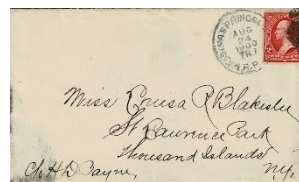 PRINCE
AUG
24
1900
R.P.O.
Miss Cruisa R Blakeslee
St Lawrence Park
Thousand Islands
N.Y.
c/o H D Payne,